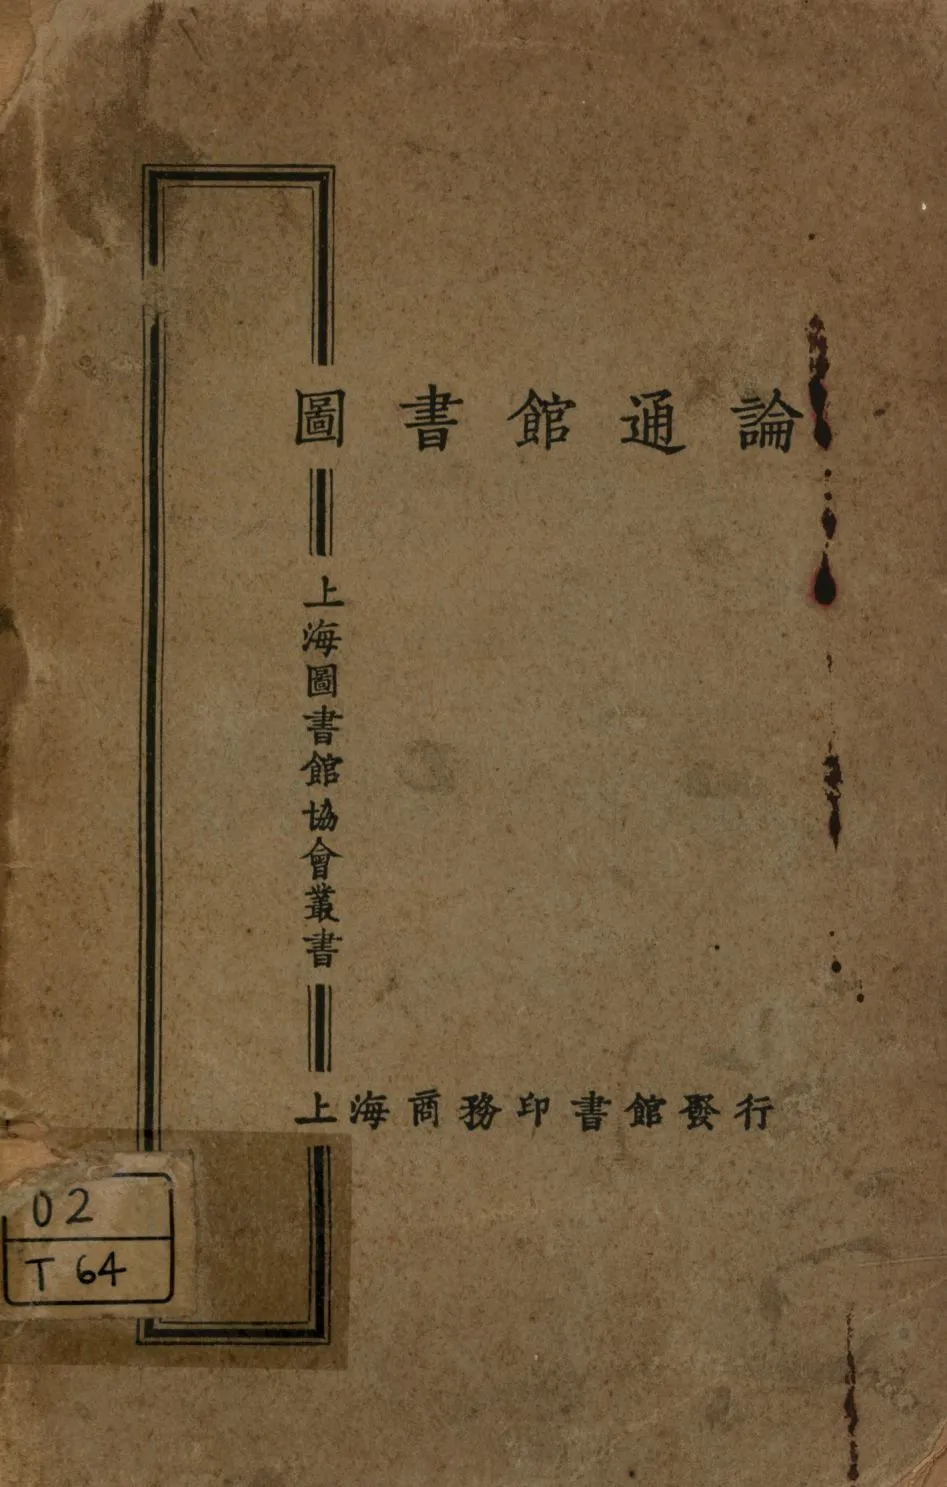 圖書館通論
上海圖書館協會叢書
上海商務印書館發行
02
T 64